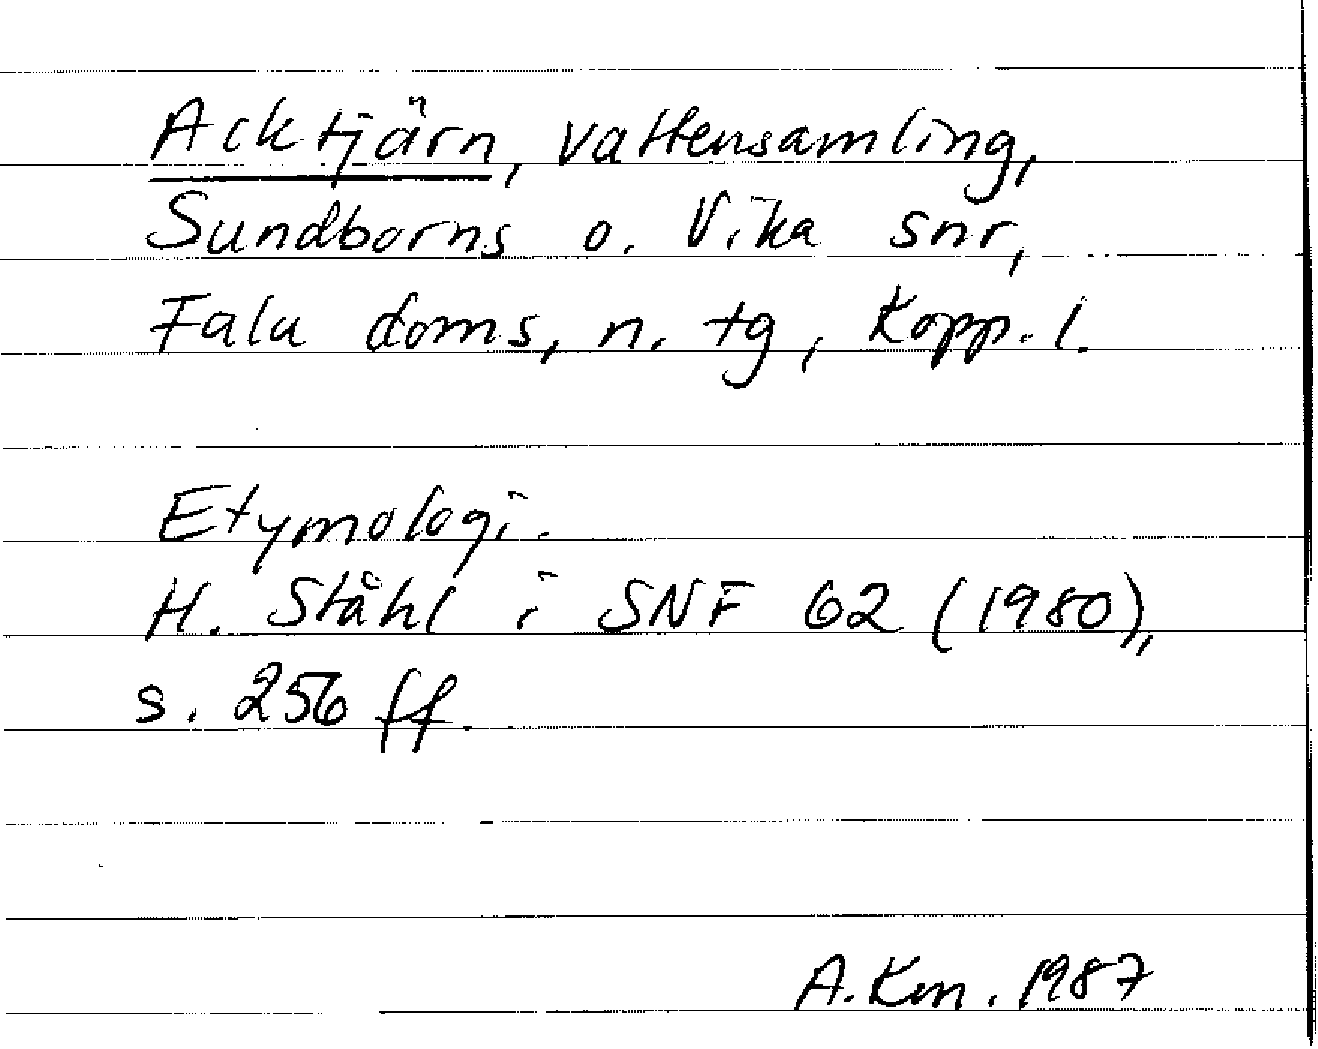 Acktjärn, vattensamling,
Sundborns o. Vika snr,
Falu doms, n. tg, Kopp. l.
Etymologi.
H. Ståhl i SNF 62 (1980),
s. 256 ff.
A. Km. 1987